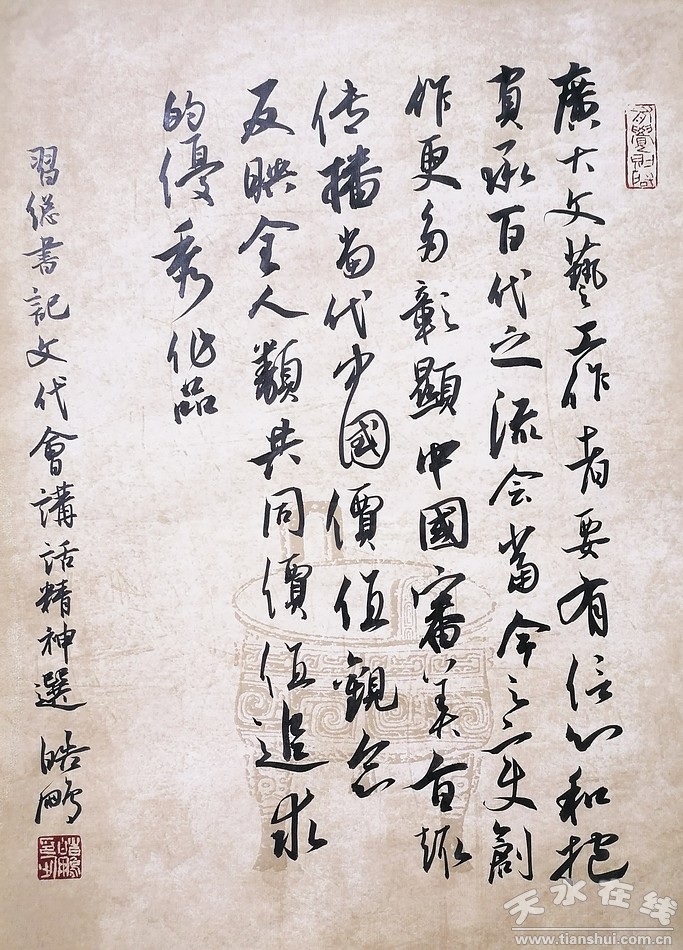 廣大文藝工作者要有信心和抱
負承百代之流会当今之变創
作更多彰顯中國審美旨趣
传播当代中國價值觀念
反映全人類共同價值追求
的優秀作品
習總書記文代會講話精神選 皓鵬
天水在线
www.tianshui.com.cn